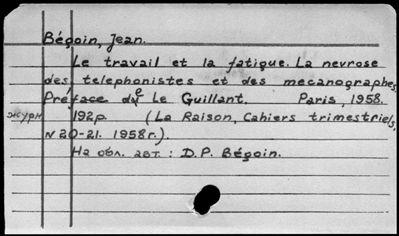 Bégoin, Jean.
Le travail et la fatigue. La nevrose
des telephonistes et des mecanographes.
Préface de Le Guillant. Paris, 1958.
журн 192p. (La Raison, Cahiers trimestriels,
N 20-21. 1958г.).
На обл. авт.: D.P. Bégoin.